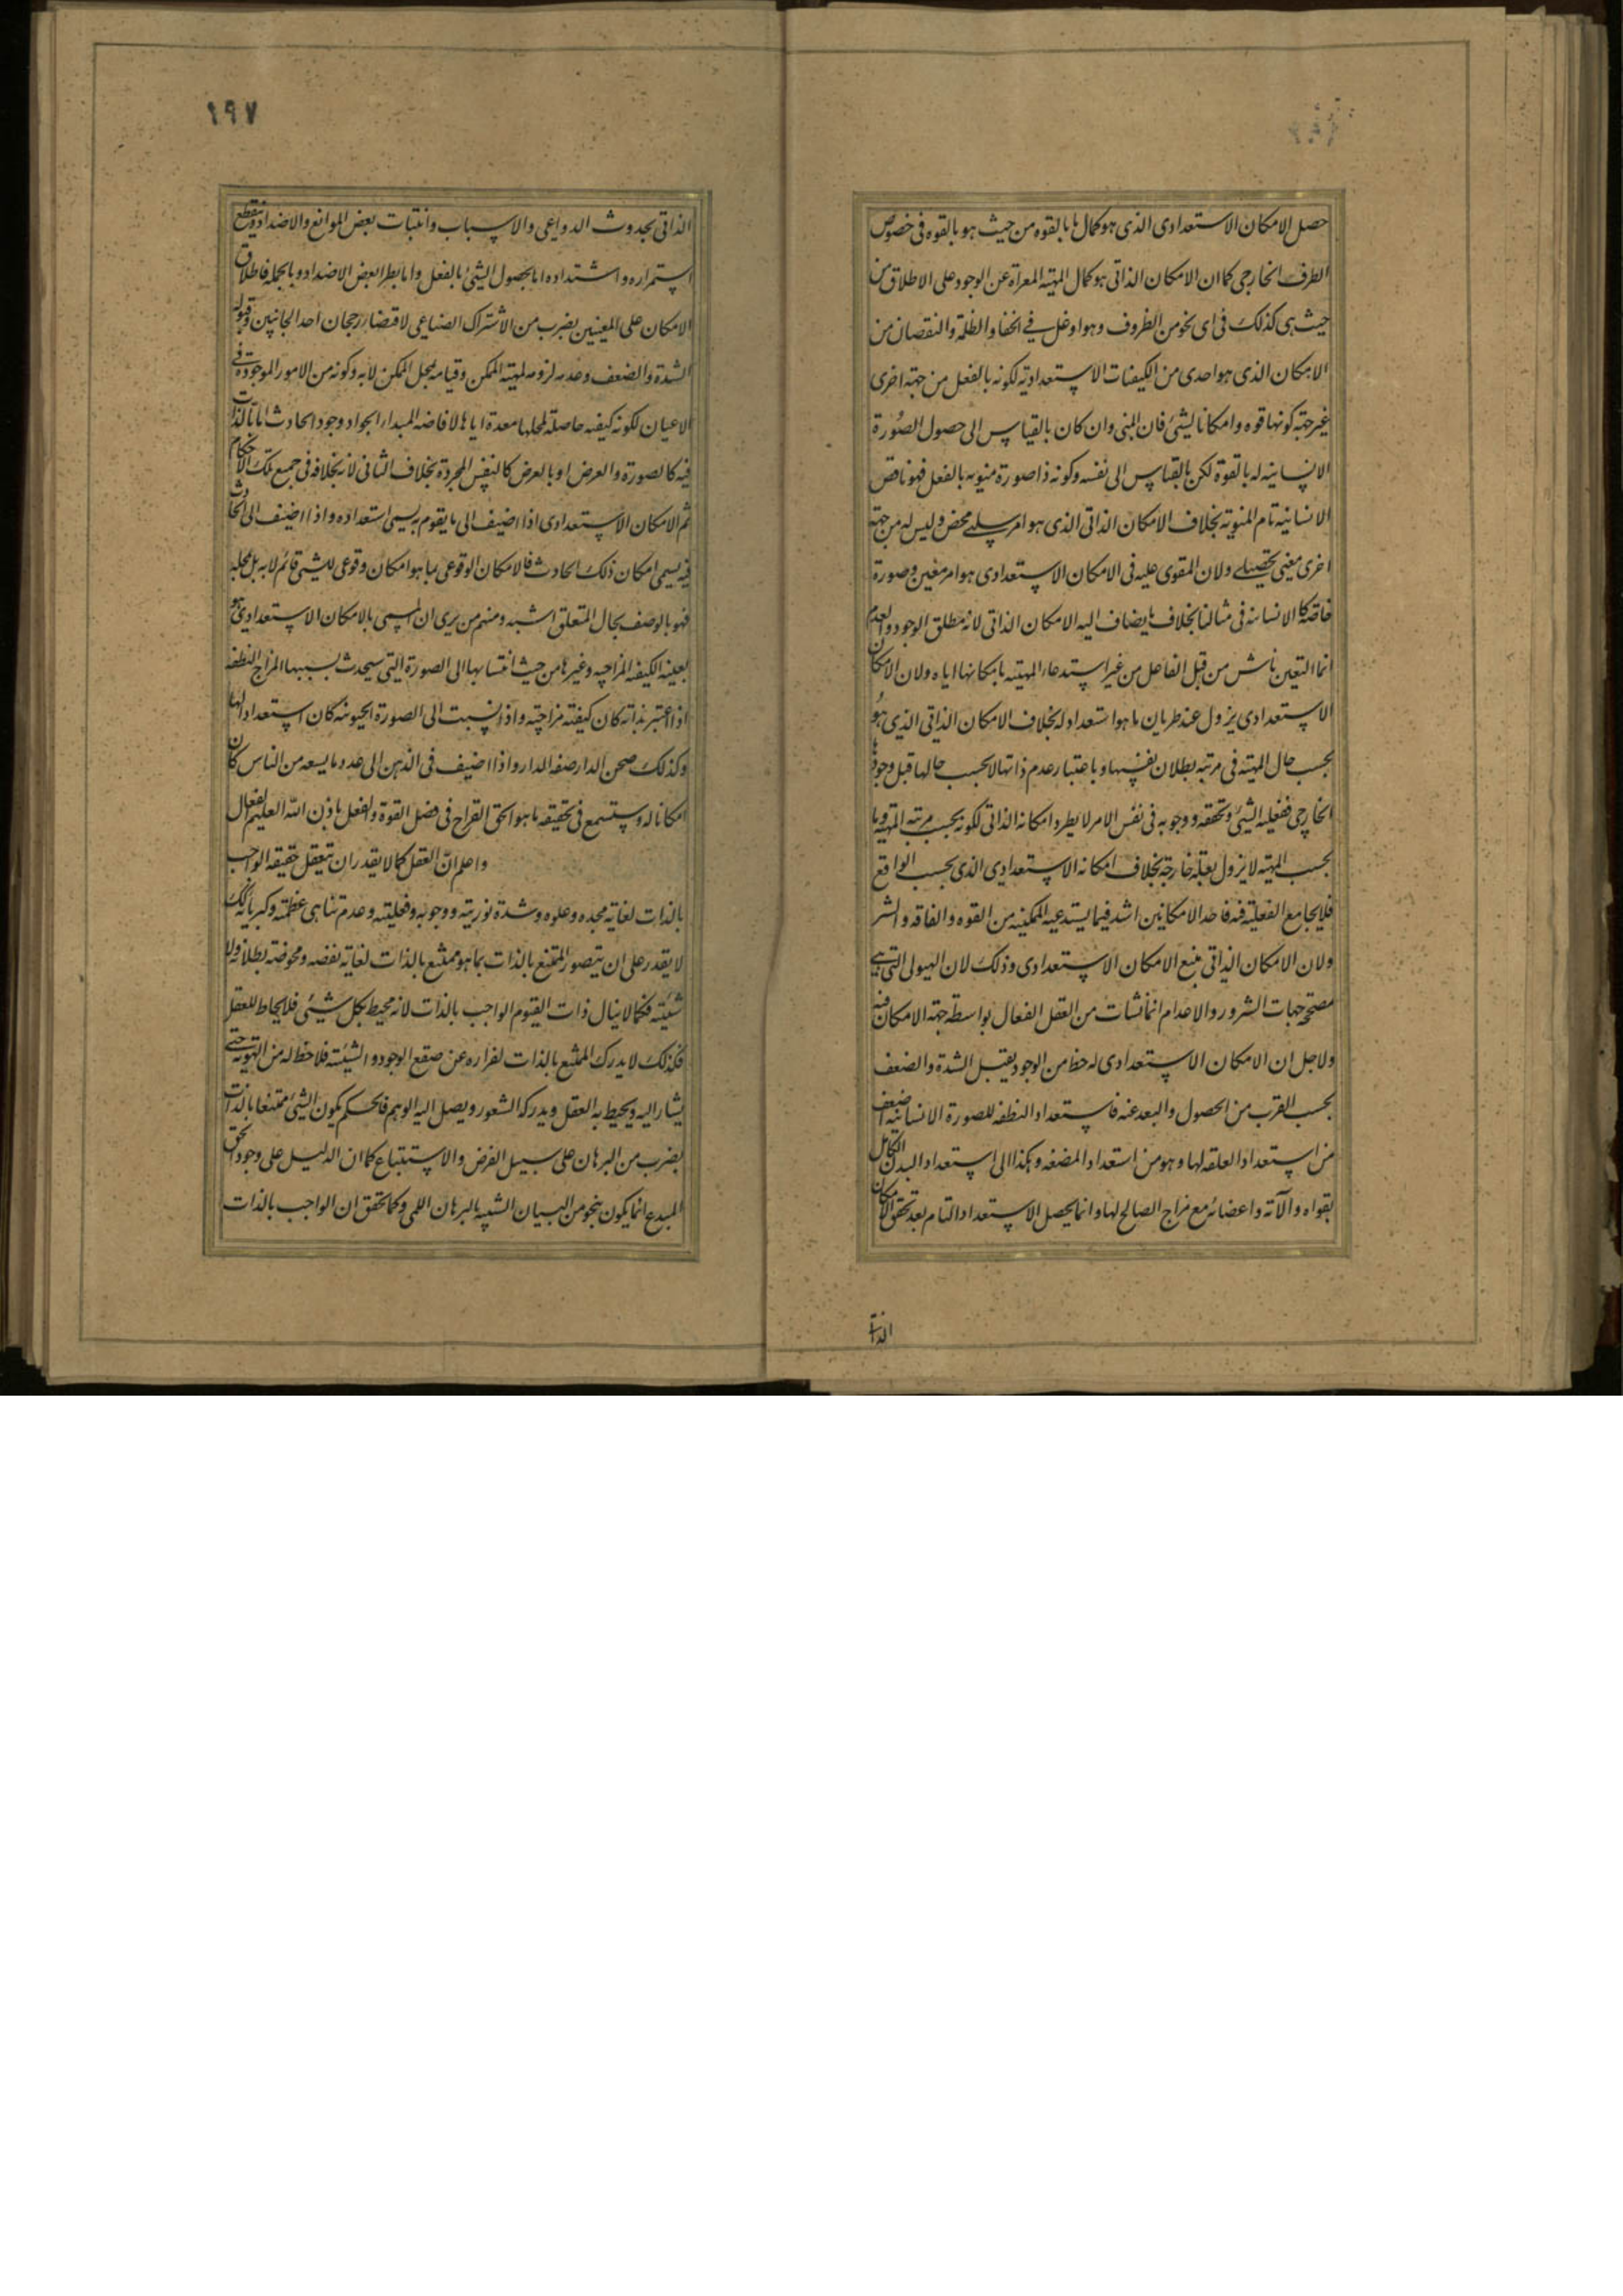 حصل الامكان الاستعدادى الذى هو كمال ما بالقوه من حيث هو بالقوه فى خصوص
الظرف الخارجى كما ان الامكان الذاتى هو كمال المهية المعراة عن الوجود على الاطلاق من
حيث هى كذلك فى اى نحو من الظروف وهو اوغل فى الخفا والظلمة والنقصان من
الامكان الذى هو احدى من الكيفيات الاستعدادية لكونه بالفعل من جهة اخرى
غير جهة كونها قوه وامكانا لشئ فان المنى وان كان بالقياس الى حصول الصورة
الانسانيه له بالقوة لكن بالقياس الى نفسه وكونه ذا صورة منويه بالفعل فهو ناقص
الانسانية تام المنوية بخلاف الامكان الذاتى الذى هو امر سلبى محض وليس له من جهة
اخرى معنى تحصيلى ولان المقوى عليه فى الامكان الاستعدادى هو امر معين وصورة
خاصة كالانسانية فى مثالنا بخلاف ما يضاف اليه الامكان الذاتى لانه مطلق الوجود والعدم
انما التعين ناش من قبل الفاعل من غير استدعاء المهية بامكانها اياه ولان الامكان
الاستعدادى يزول عند طريان ما هو استعداد له بخلاف الامكان الذاتى الذى هو
بحسب حال المهية فى مرتبه بطلان نفسها وباعتبار عدم ذاتها لا بحسب حالها قبل وجودها
الخارجى ففعليه الشئ وتحققه ووجوبه فى نفس الامر لا يطرد امكانه الذاتى لكونه بحسب مرتبه المهية وما
بحسب المهية لا يزول بعلة خارجة بخلاف امكانه الاستعدادى الذى بحسب الواقع
فلا يجامع الفعلية فيه فاحد الامكانين اشد فيما يستدعيه الممكنيه من القوه والفاقه والشر
ولان الامكان الذاتى منبع الامكان الاستعدادى وذلك لان الهيولى التى هى
مصححة جهات الشرور والاعدام انما نشات من العقل الفعال بواسطة جهة الامكان فيه
ولاجل ان الامكان الاستعدادى له حظ من الوجود يقبل الشدة والضعف
بحسب القرب من الحصول والبعد عنه فاستعداد النطفه للصورة الانسانية اضعف
من استعداد العلقه لها وهو من استعداد المضغه وهكذا الى استعداد البدن الكامل
بقواه وآلاته واعضائه مع مزاج الصالح لها وانما يحصل الاستعداد التام بعد تحقق الامكان
الذا
١٩٧
الذاتى بحدوث الدواعى والاسباب وانتبات بعض الموانع والاضداد وينقطع
استمراره واشتداده اما بحصول الشئ بالفعل واما بطرا بعض الاضداد وبالجمله فاطلاق
الامكان على المعنيين بضرب من الاشتراك الصناعى لاقتضاء رجحان احد الجانبين وقبوله
الشدة والضعف وعدم لزومه لمهية الممكن وقيامه بمحل الممكن لا به وكونه من الامور الموجودة فى
الاعيان لكونه كيفيه حاصلة لمحلها معدة اياها لافاضه المبدا الجواد وجود الحادث اما بالذات
فيه كالصورة والعرض او بالعرض كالنفس المجردة بخلاف الثانى لانه بخلافه فى جميع تلك الاحكام
ثم الامكان الاستعدادى اذا اضيف الى ما يقوم به يسمى استعداده واذا اضيف الى الحادث
فيه يسمى امكان ذلك الحادث فالامكان الوقوعى بما هو امكان وقوعى للشئ قائم لا به بل بمحله
فهو بالوصف بحال المتعلق اشبه ومنهم من يرى ان المسمى بالامكان الاستعدادى هو
بعينه الكيفيه المزاجيه وغيرها من حيث انتسابها الى الصورة التى سيحدث بسببها المزاج النطفه
اذا اعتبر بذاته كان كيفيته مزاجية واذا انسبت الى الصورة الحيوانيه كان استعدادا لها
وكذلك صحن الدار صفه الدار واذا اضيف فى الذهن الى عدد ما يسعه من الناس كان
امكانا له وستسمع فى تحقيقه ما هو الحق القراح فى فصل القوة والفعل باذن الله العليم الفعال
واعلم ان العقل كما لا يقدر ان يتعقل حقيقه الواجب
بالذات لغايه مجده وعلوه وشدة نوريته ووجوبه وفعليته وعدم تناهى عظمته وكبريائه كذلك
لا يقدر على ان يتصور الممتنع بالذات بما هو ممتنع بالذات لغاية نقصه ومحوضه بطلانه ولا
شيئيه فكما لا ينال ذات القيوم الواجب بالذات لانه محيط بكل شيئ فلا يحاط للعقل
فكذلك لا يدرك الممتنع بالذات لفراره عن صقع الوجود والشيئية فلا حظ له من الهوية حتى
يشار اليه ويحيط به العقل ويدركه الشعور ويصل اليه الوهم فالحكم بكون الشئ ممتنعا بالذات
بضرب من البرهان على سبيل الفرض والاستتباع كما ان الدليل على وجود الحق
المبدع انما يكون بنحو من البيان الشبيه بالبرهان اللمى وكما تحقق ان الواجب بالذات